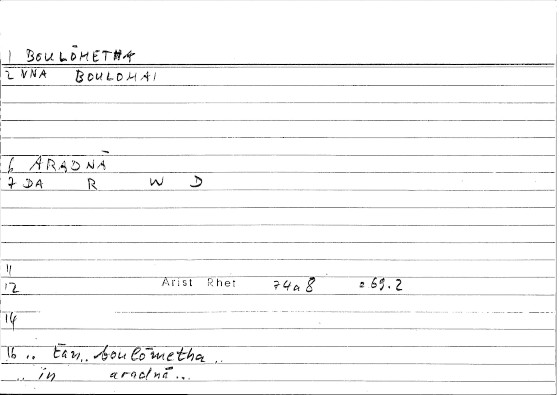 1 BOULŌMETHA
2 VNA BOULOMAI
6 ARADNĀ
7 DA R W D
11
12 Arist Rhet 74a8 = 69.2
14
16 .. ēan .. boulōmetha ..
.. in aradnā ...